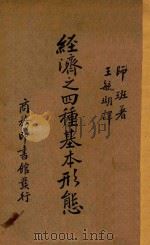 師班著
王毓瑚譯
經濟之四種基本形態
商務印書館發行